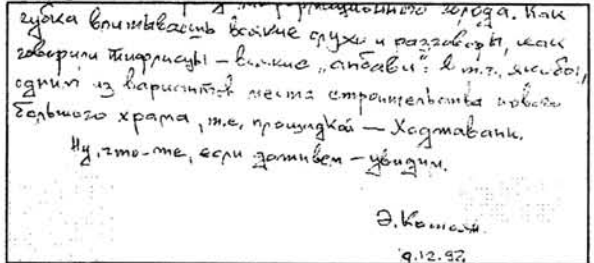 информационного города. Как
губка впитываешь всякие слухи и разговоры, как
говорили тифлисцы – всякие „амбави“: в т.ч., якобы,
одним из вариантов места строительства нового
большого храма, т.е. площадкой — Ходжаванк.
Ну, что-же, если доживем – увидим.
Э.
9.12.92